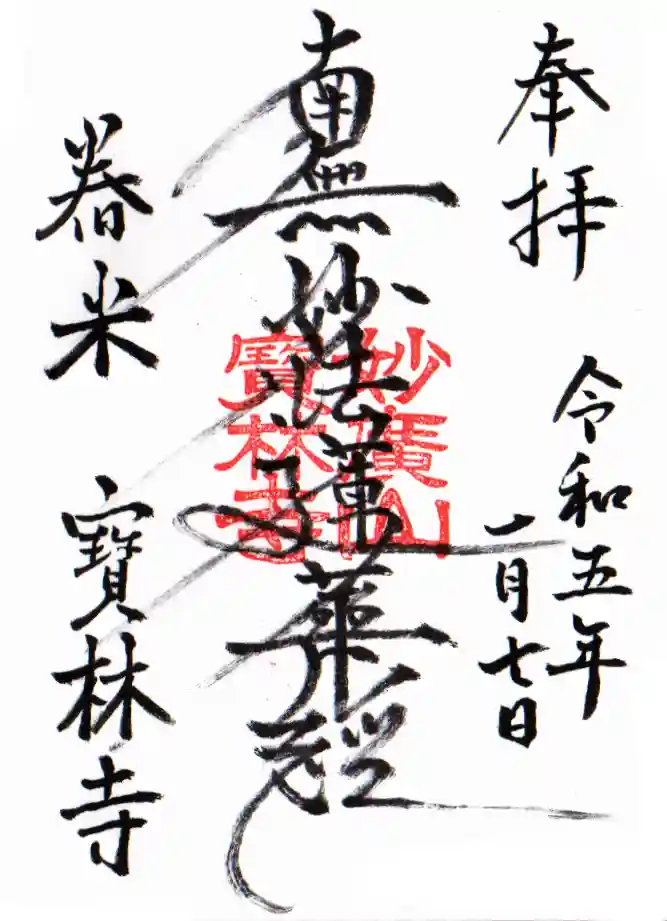 奉拝
令和五年
一月七日
南無妙法蓮華経
妙廣山
寶林寺
舂米
寶林寺